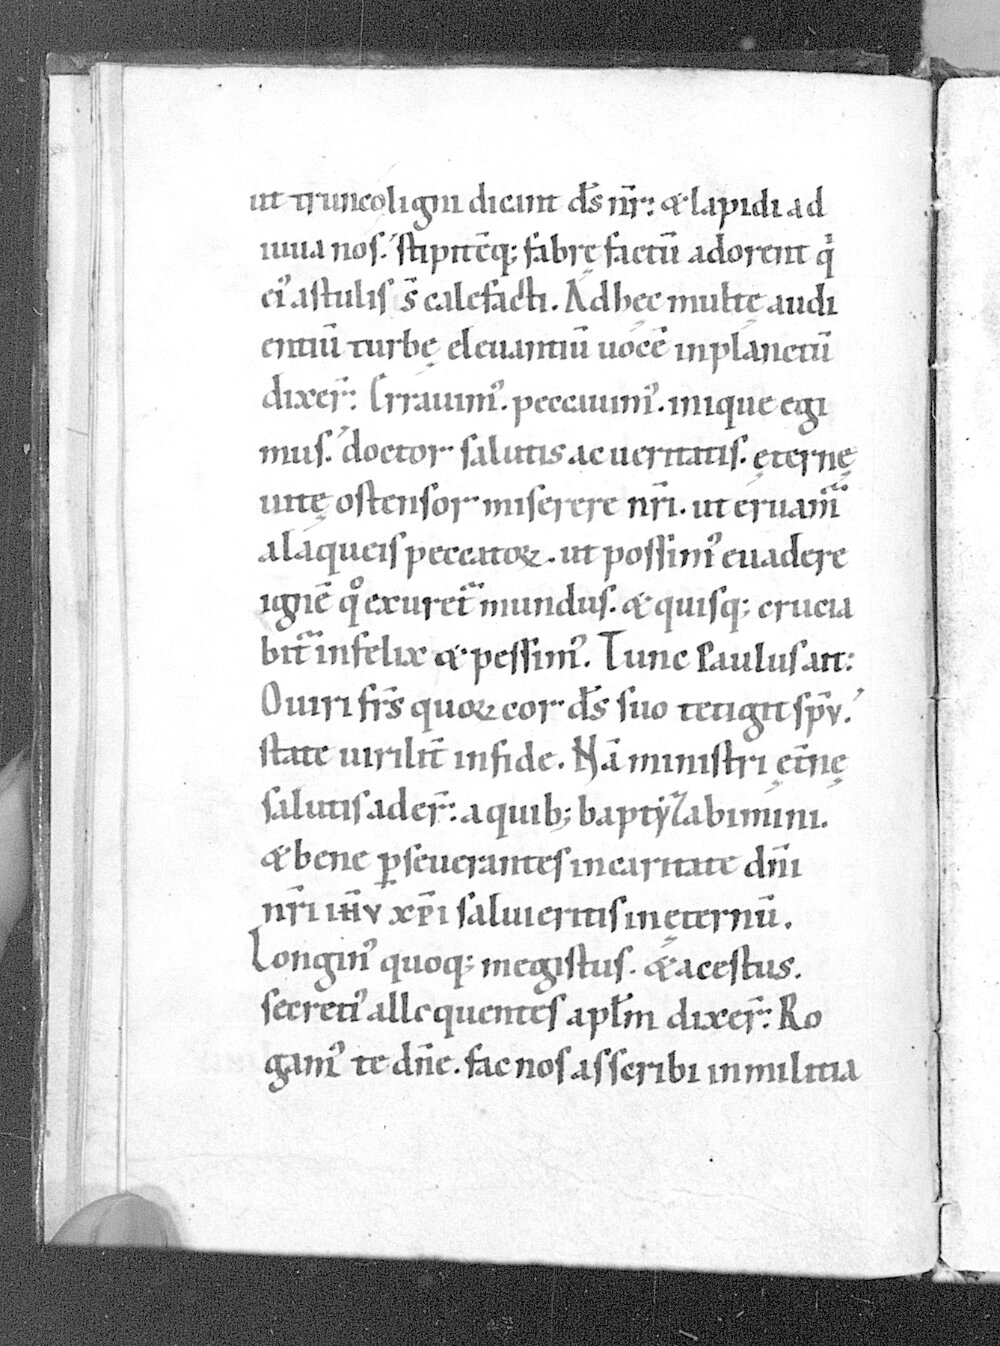 ut trunco ligni dicant dš nr̄: & lapidi ad
iuua nos. stipitēq; fabrę factū adorent q̇
ei᾽ astulis s̄ calefacti. Ad hęc multę audi
entiū turbę eleuantiū uocē in planctū
dixer̄: Erravim᾽. peccauim᾽. inique egi
mus. doctor salutis ac ueritatis. ęternę
uitę ostensor miserere nr̄i. ut eruam̄
a laqueis peccatoꝝ. ut possim᾽ euadere
ignē qͦ exuret̄ mundus. & quisq; crucia
bit̄ infelix & pessim᾽. Tunc Paulus ait:
O uiri frs̄ quoꝝ cor dš suo tetigit spv̄.
state uirilit̄ in fide. Nā ministri ęt̄nę
salutis ader̄: a quib; baptyzabimini.
& bene ꝑseuerantes in caritate dn̄i
nr̄i ihv̄ xp̄i salui eritis in ęternū.
Longin᾽ quoq; megistus. & acestus.
secreti᾽ alloquentes apl̄m dixer̄: Ro
gam᾽ te dn̄e. fac nos asscribi in militia